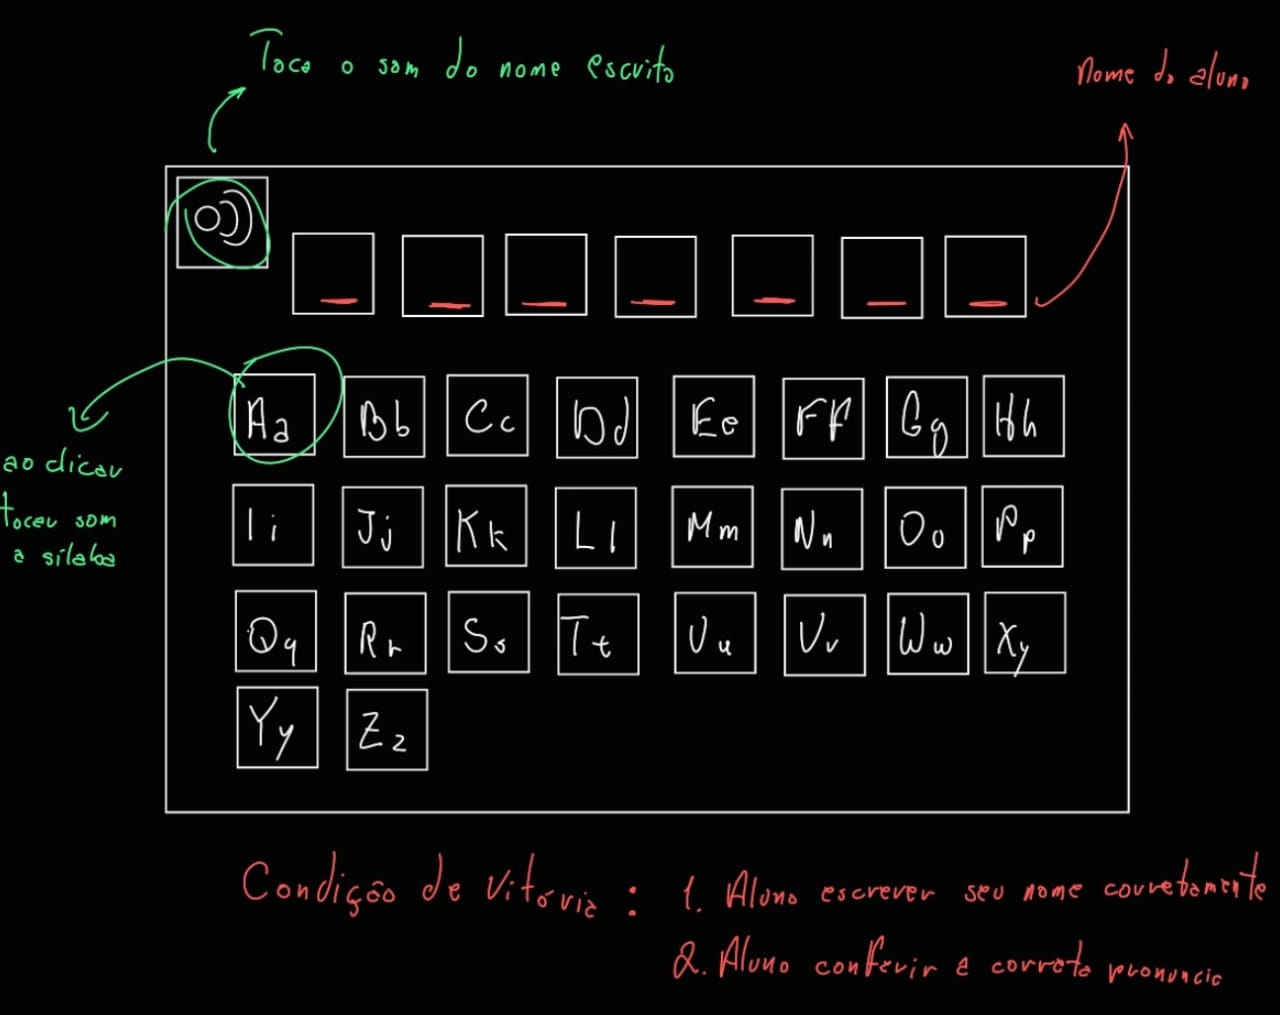 Toca o som do nome escrito
Nome do aluno
Aa Bb Cc Dd Ee Ff Gg Hh
ao clicar
tocar som
a sílaba
Ii Jj Kk Ll Mm Nn Oo Pp
Qq Rr Ss Tt Uu Vv Ww Xy
Yy Zz
Condição de Vitória : 1. Aluno escrever seu nome corretamente
2. Aluno conferir a correta pronuncia